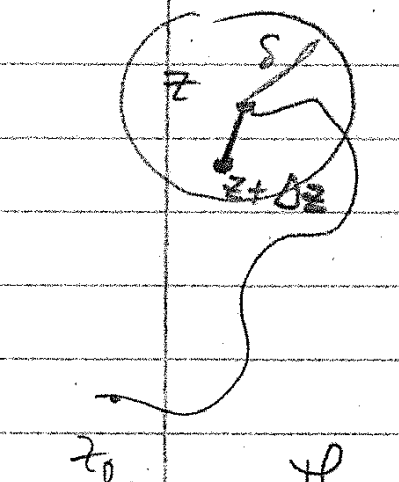 δ
z
z + Δz
z₀